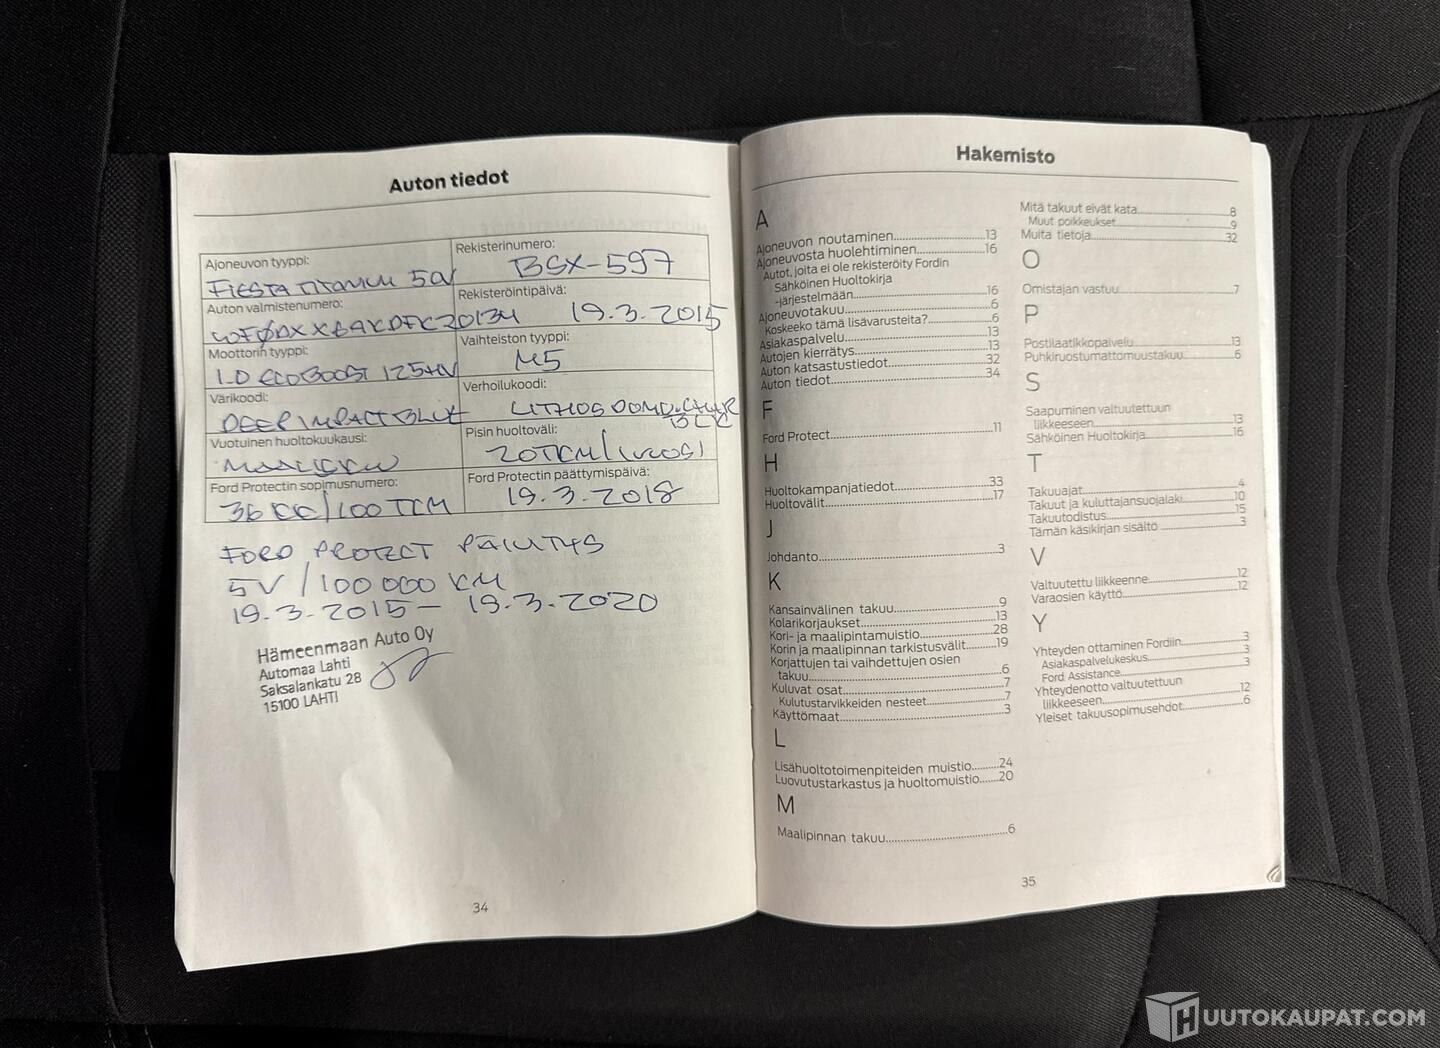 Auton tiedot
Ajoneuvon tyyppi:
FIESTA TITANIUM 5OV
Rekisterinumero:
BSX-597
Auton valmistenumero:
Rekisteröintipäivä:
19.3.2015
Moottorin tyyppi:
1.0 ECOBOOST 125HV
Vaihteiston tyyppi:
M5
Värikoodi:
DEEP IMPACT BLUE
Verhoilukoodi:
LITHOS
Vuotuinen huoltokuukausi:
MAALISKUU
Pisin huoltoväli:
20TKM/1VUOSI
Ford Protectin sopimusnumero:
36KK/100TKM
Ford Protectin päättymispäivä:
19.3.2018
FORD PROTECT PÄIVITYS
5V/100 000 KM
19.3.2015 - 19.3.2020
Hämeenmaan Auto Oy
Automaa Lahti
Saksalankatu 28
15100 LAHTI
34
Hakemisto
A
Ajoneuvon noutaminen 13
Ajoneuvosta huolehtiminen 16
Autot, joita ei ole rekisteröity Fordin
Sähköinen Huoltokirja
-järjestelmään 16
Ajoneuvotakuu 6
Koskeeko tämä lisävarusteita? 6
Asiakaspalvelu 13
Autojen kierrätys 13
Auton katsastustiedot 32
Auton tiedot 34
F
Ford Protect 11
H
Huoltokampanjatiedot 33
Huoltovälit 17
J
Johdanto 3
K
Kansainvälinen takuu 9
Kolarikorjaukset 13
Kori- ja maalipintamuistio 28
Korin ja maalipinnan tarkistusvälit 19
Korjattujen tai vaihdettujen osien
takuu 6
Kuluvat osat 7
Kulutustarvikkeiden nesteet 7
Käyttömaat 3
L
Lisähuoltotoimenpiteiden muistio 24
Luovutustarkastus ja huoltomuistio 20
M
Maalipinnan takuu 6
Mitä takuut eivät kata 8
Muut poikkeukset 9
Muita tietoja 32
O
Omistajan vastuu 7
P
Postilaatikkopalvelu 13
Puhkiruostumattomuustakuu 6
S
Saapuminen valtuutettuun
liikkeeseen 13
Sähköinen Huoltokirja 16
T
Takuuajat 4
Takuut ja kuluttajansuojalaki 10
Takuutodistus 15
Tämän käsikirjan sisältö 3
V
Valtuutettu liikkeenne 12
Varaosien käyttö 12
Y
Yhteyden ottaminen Fordiin 3
Asiakaspalvelukeskus 3
Ford Assistance 3
Yhteydenotto valtuutettuun
liikkeeseen 12
Yleiset takuusopimusehdot 6
35
HUUTOKAUPAT.COM